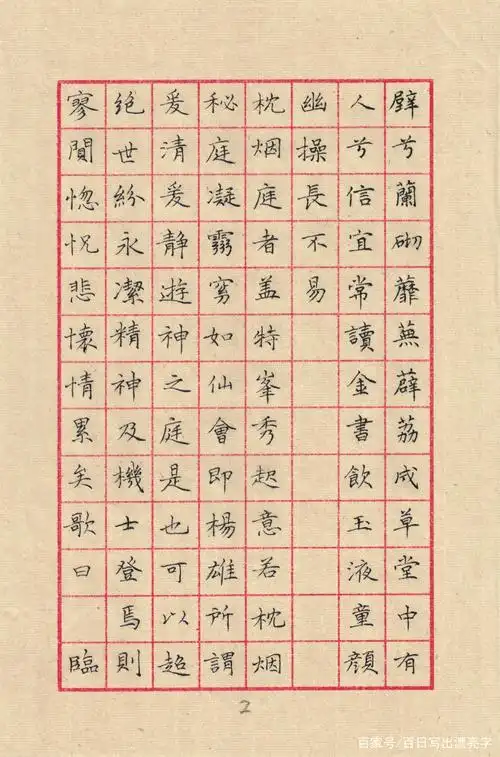 壁兮蘭砌蘼蕪薜荔成草堂中有
人兮信宜常讀金書飲玉液童顔
幽操長不易
枕烟庭者盖特峯秀起意若枕烟
秘庭凝霧窅如仙會即楊雄所謂
爰清爰静遊神之庭是也可以超
絶世紛永潔精神及機士登焉則
寥闃惚怳悲懷情累矣歌曰 臨
2
百家号/百日写出漂亮字